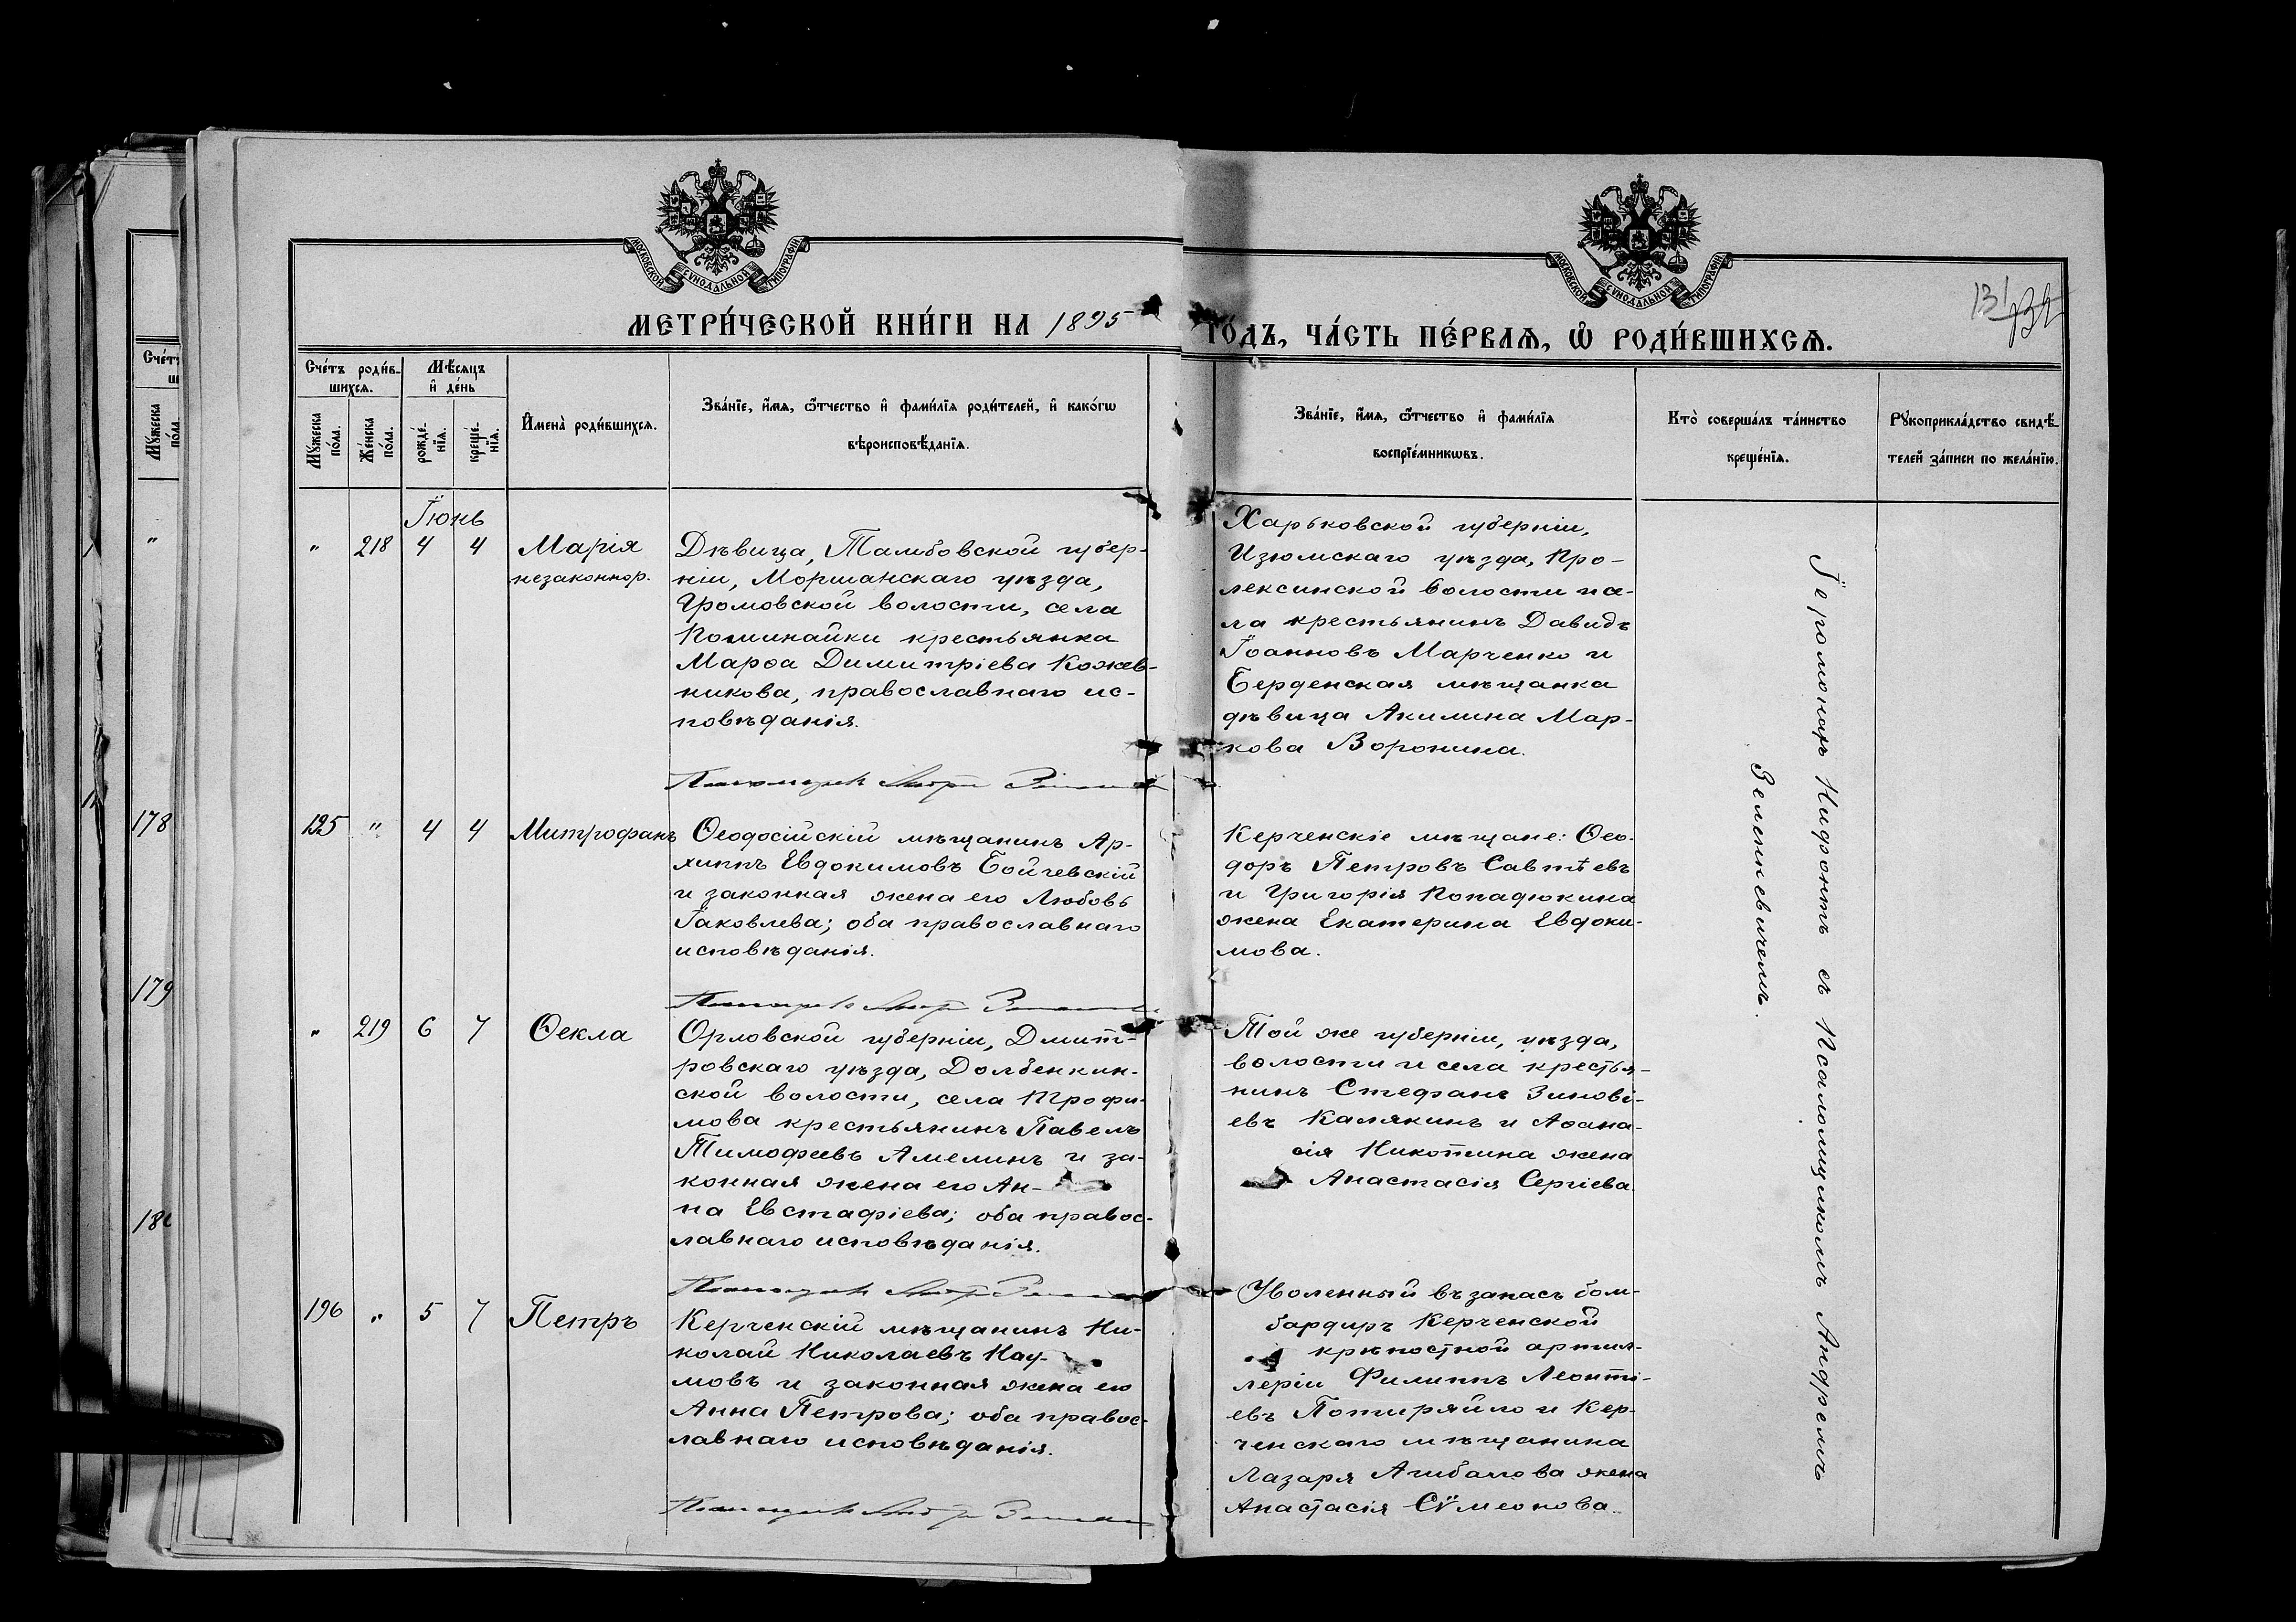 МОСКОВСКОЙ СУНОДАЛЬНОЙ ТИПОГРАФІИ
МОСКОВСКОЙ СУНОДАЛЬНОЙ ТИПОГРАФІИ
131
132
МЕТРИ́ЧЕСКОЙ КНИ́ГИ НА 1895
ГО́ДЪ, ЧА́СТЬ ПЕ́РВАѦ, Ѡ҆ РОДИ́ВШИХСѦ.
Сче́тъ роди́в-
шихсѧ.
Мѣ́сѧцъ
и҆ де́нь
Мꙋ́жеска
по́ла.
Же́нска
по́ла.
рожде́-
нїѧ.
креще́-
нїѧ.
И҆мена̀ роди́вшихсѧ.
Зва́нїе, и҆́мѧ, ѻ҆́тчество и҆ фами́лїѧ роди́телей, и҆ како́гѡ
вѣроисповѣ́данїѧ.
Зва́нїе, и҆́мѧ, ѻ҆́тчество и҆ фами́лїѧ
воспрїе́мникѡвъ.
Кто̀ соверша́лъ та́инство
креще́нїѧ.
Рꙋкоприкла́дство свидѣ́-
телей за́писи по жела́нїю.
Сче́тъ
Мꙋ́жеска
по́ла.
"
178
179
Іюнь
" 218 4 4 Марія
незаконнор.
Дѣвица, Тамбовской губер-
ніи, Моршанскаго уѣзда,
Громовской волости, села
Коминайки крестьянка
Марѳа Димитріева Кожев-
никова, православнаго ис-
повѣданія.
Харьковской губерніи,
Изюмскаго уѣзда, Про-
лексинской волости и се-
ла крестьянинъ Давидъ
Іоанновъ Марченко и
Берденская мѣщанка
дѣвица Акилина Мар-
кова Воронина.
195 " 4 4 Митрофанъ
Ѳеодосійскій мѣщанинъ Ар-
хиппъ Евдокимовъ Бойчевскій
и законная жена его Любовь
Іаковлева; оба православнаго
исповѣданія.
Керченскіе мѣщане: Ѳео-
доръ Петровъ Савтѣевъ
и Григорія Копадюкина
жена Екатерина Евдоки-
мова.
" 219 6 7 Ѳекла
Орловской губерніи, Дмит-
ровскаго уѣзда, Долбенкин-
ской волости, села Трофи-
мова крестьянинъ Павелъ
Тимофеевъ Амелинъ и за-
конная жена его Ан-
на Евстафіева; оба правос-
лавнаго исповѣданія.
Той же губерніи, уѣзда,
волости и села крестья-
нинъ Стефанъ Зинові-
евъ Калякинъ и Аѳана-
сія Никотина жена
Анастасія Сергіева.
196 " 5 7 Петръ
Керченскій мѣщанинъ Ни-
колай Николаевъ Нау-
мовъ и законная жена его
Анна Петрова; оба правос-
лавнаго исповѣданія.
Уволенный въ запасъ бом-
бардиръ Керченской
крѣпостной артил-
леріи Филиппъ Леонті-
евъ Потиряйло и Кер-
ченскаго мѣщанина
Лазаря Агибалова жена
Анастасія Сѵмеонова.
Іеромонахъ Нифонтъ съ Псаломщикомъ Андреемъ
Зеленкевичемъ.